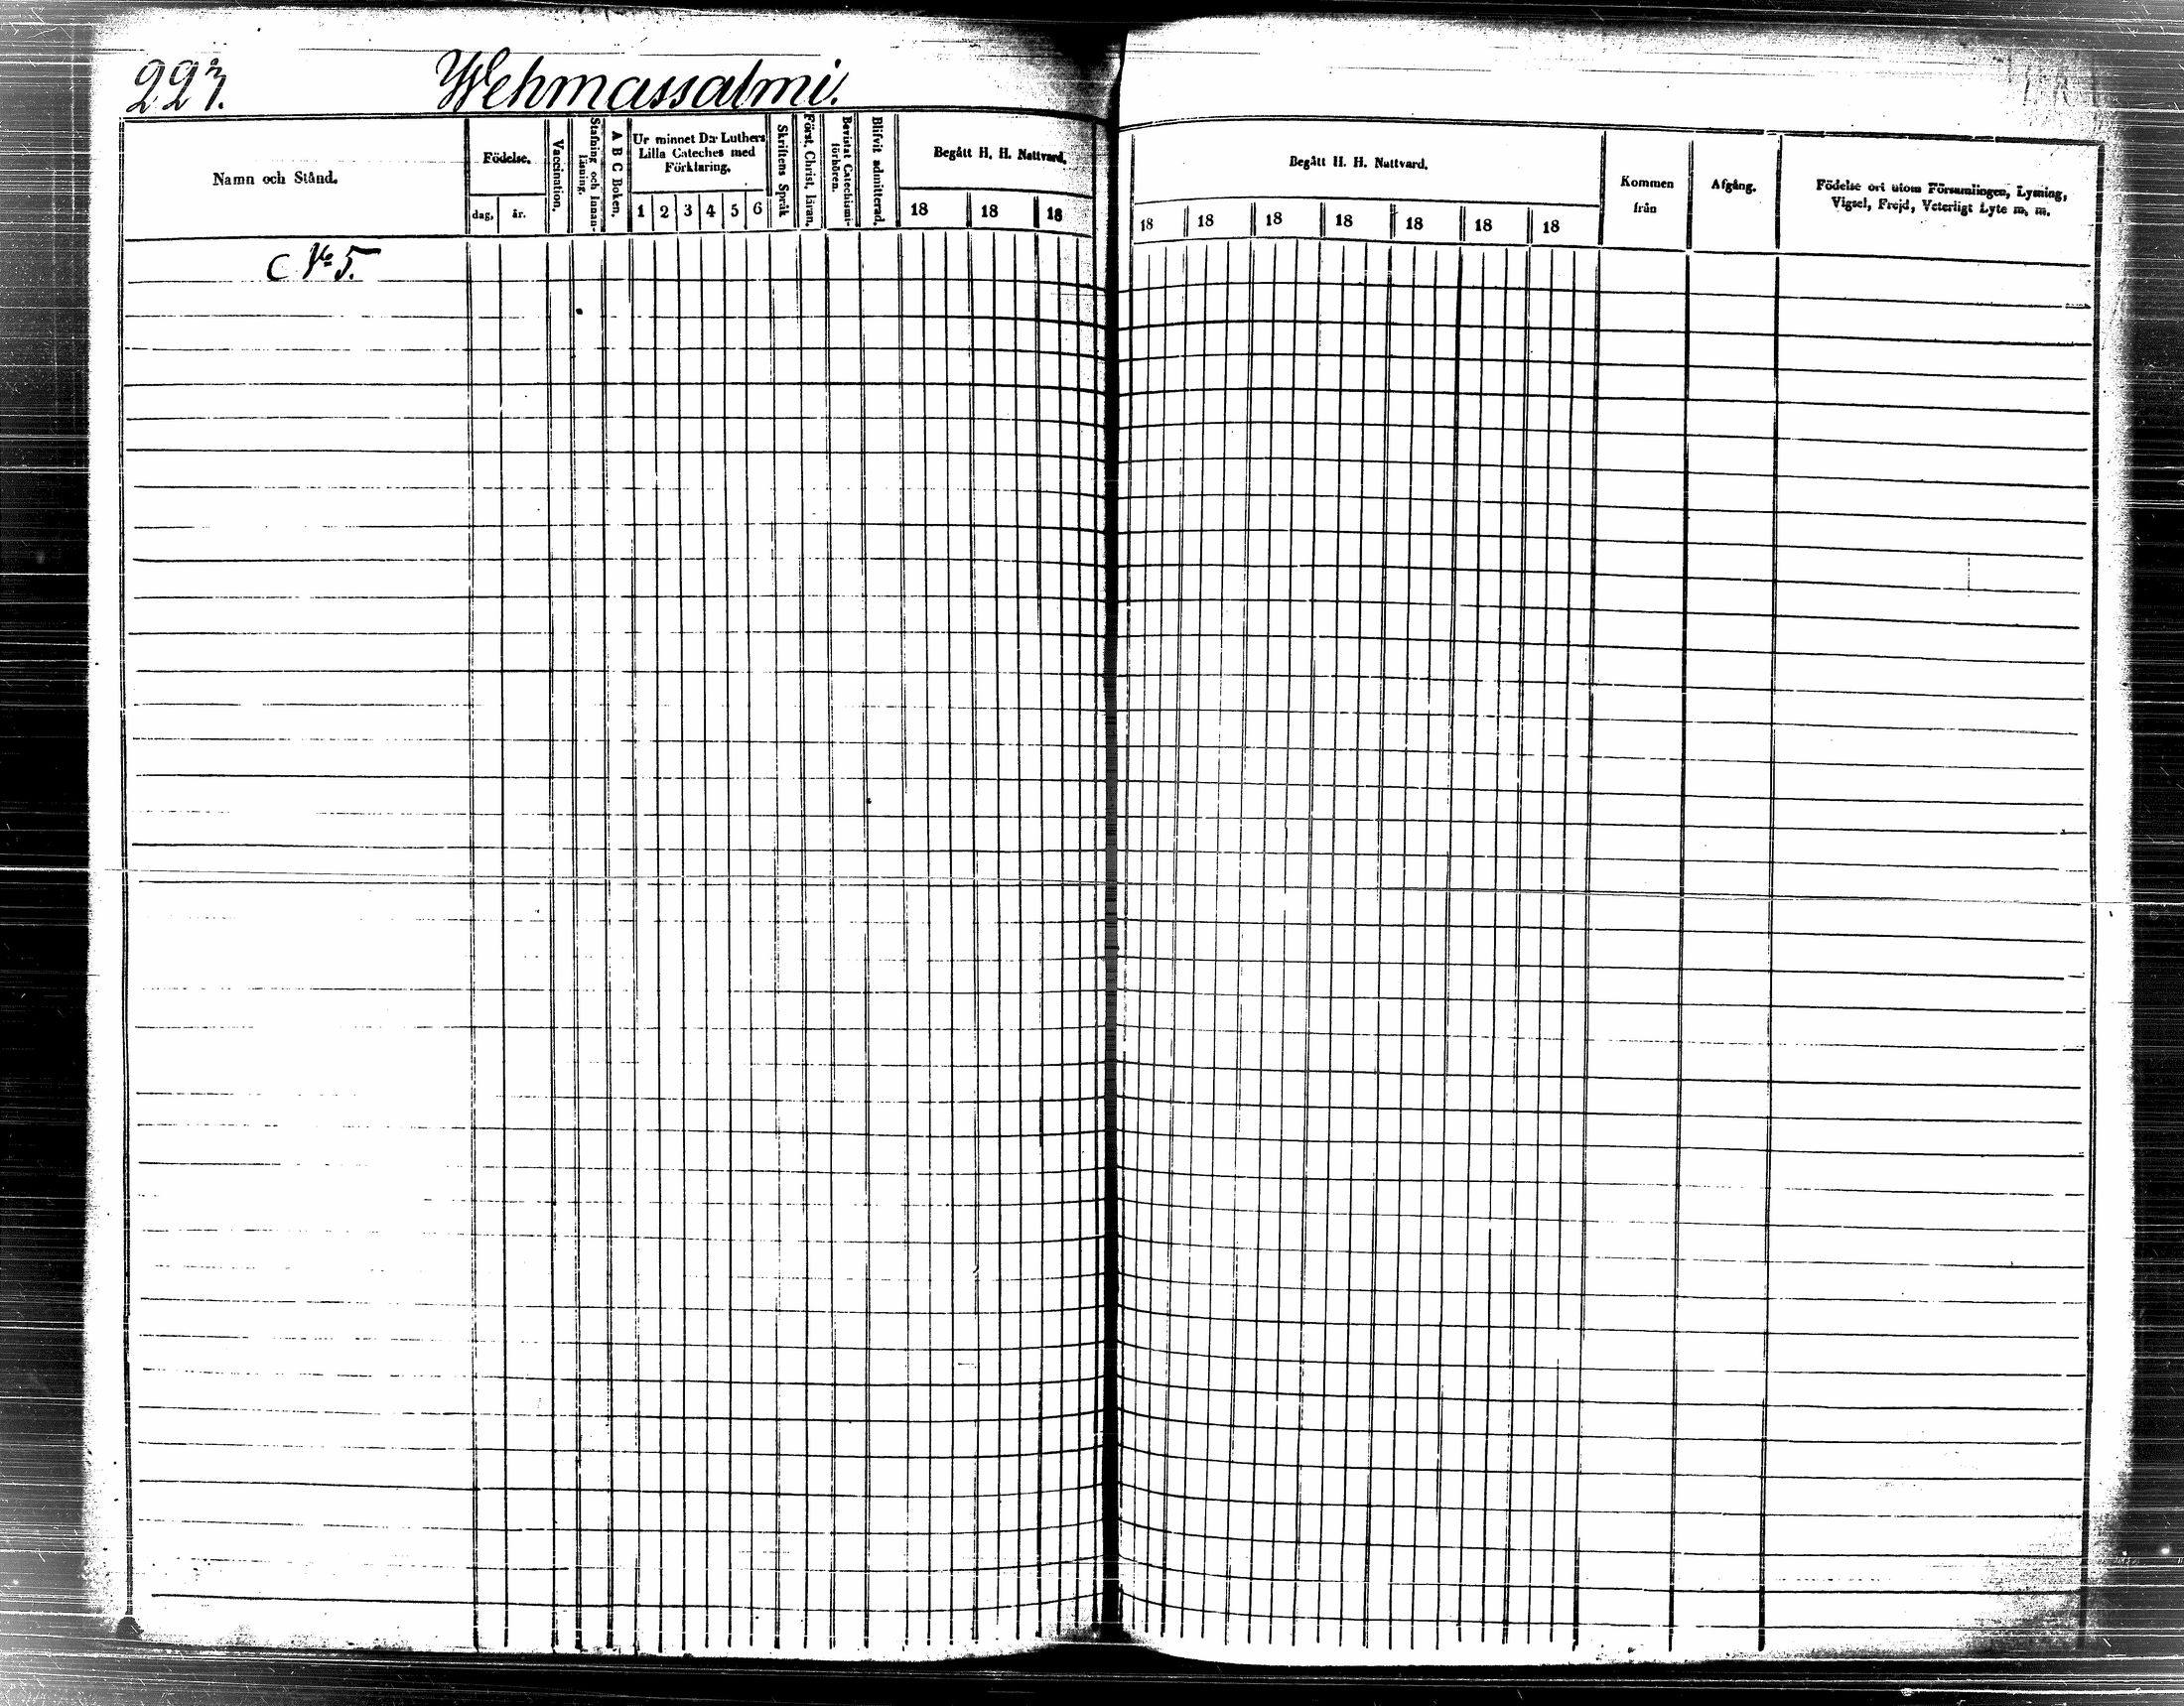 227. Wehmassalmi.
Namn och Stånd.
Födelse.
dag, år.
Vaccination.
Stafning och Innan-
läsning.
A B C Boken.
Ur minnet D:r Luthers
Lilla Cateches med
Förklaring.
1 2 3 4 5 6
Skriftens Språk
Först. Christ. läran.
Bevistat Catechismi-
förhören.
Blifvit admitterad.
Begått H. H. Nattvard.
18 18 18
Begått H. H. Nattvard.
18 18 18 18 18 18 18
Kommen
från
Afgång.
Födelse ort utom Församlingen, Lysning,
Vigsel, Frejd, Veterligt Lyte m. m.
C No 5.